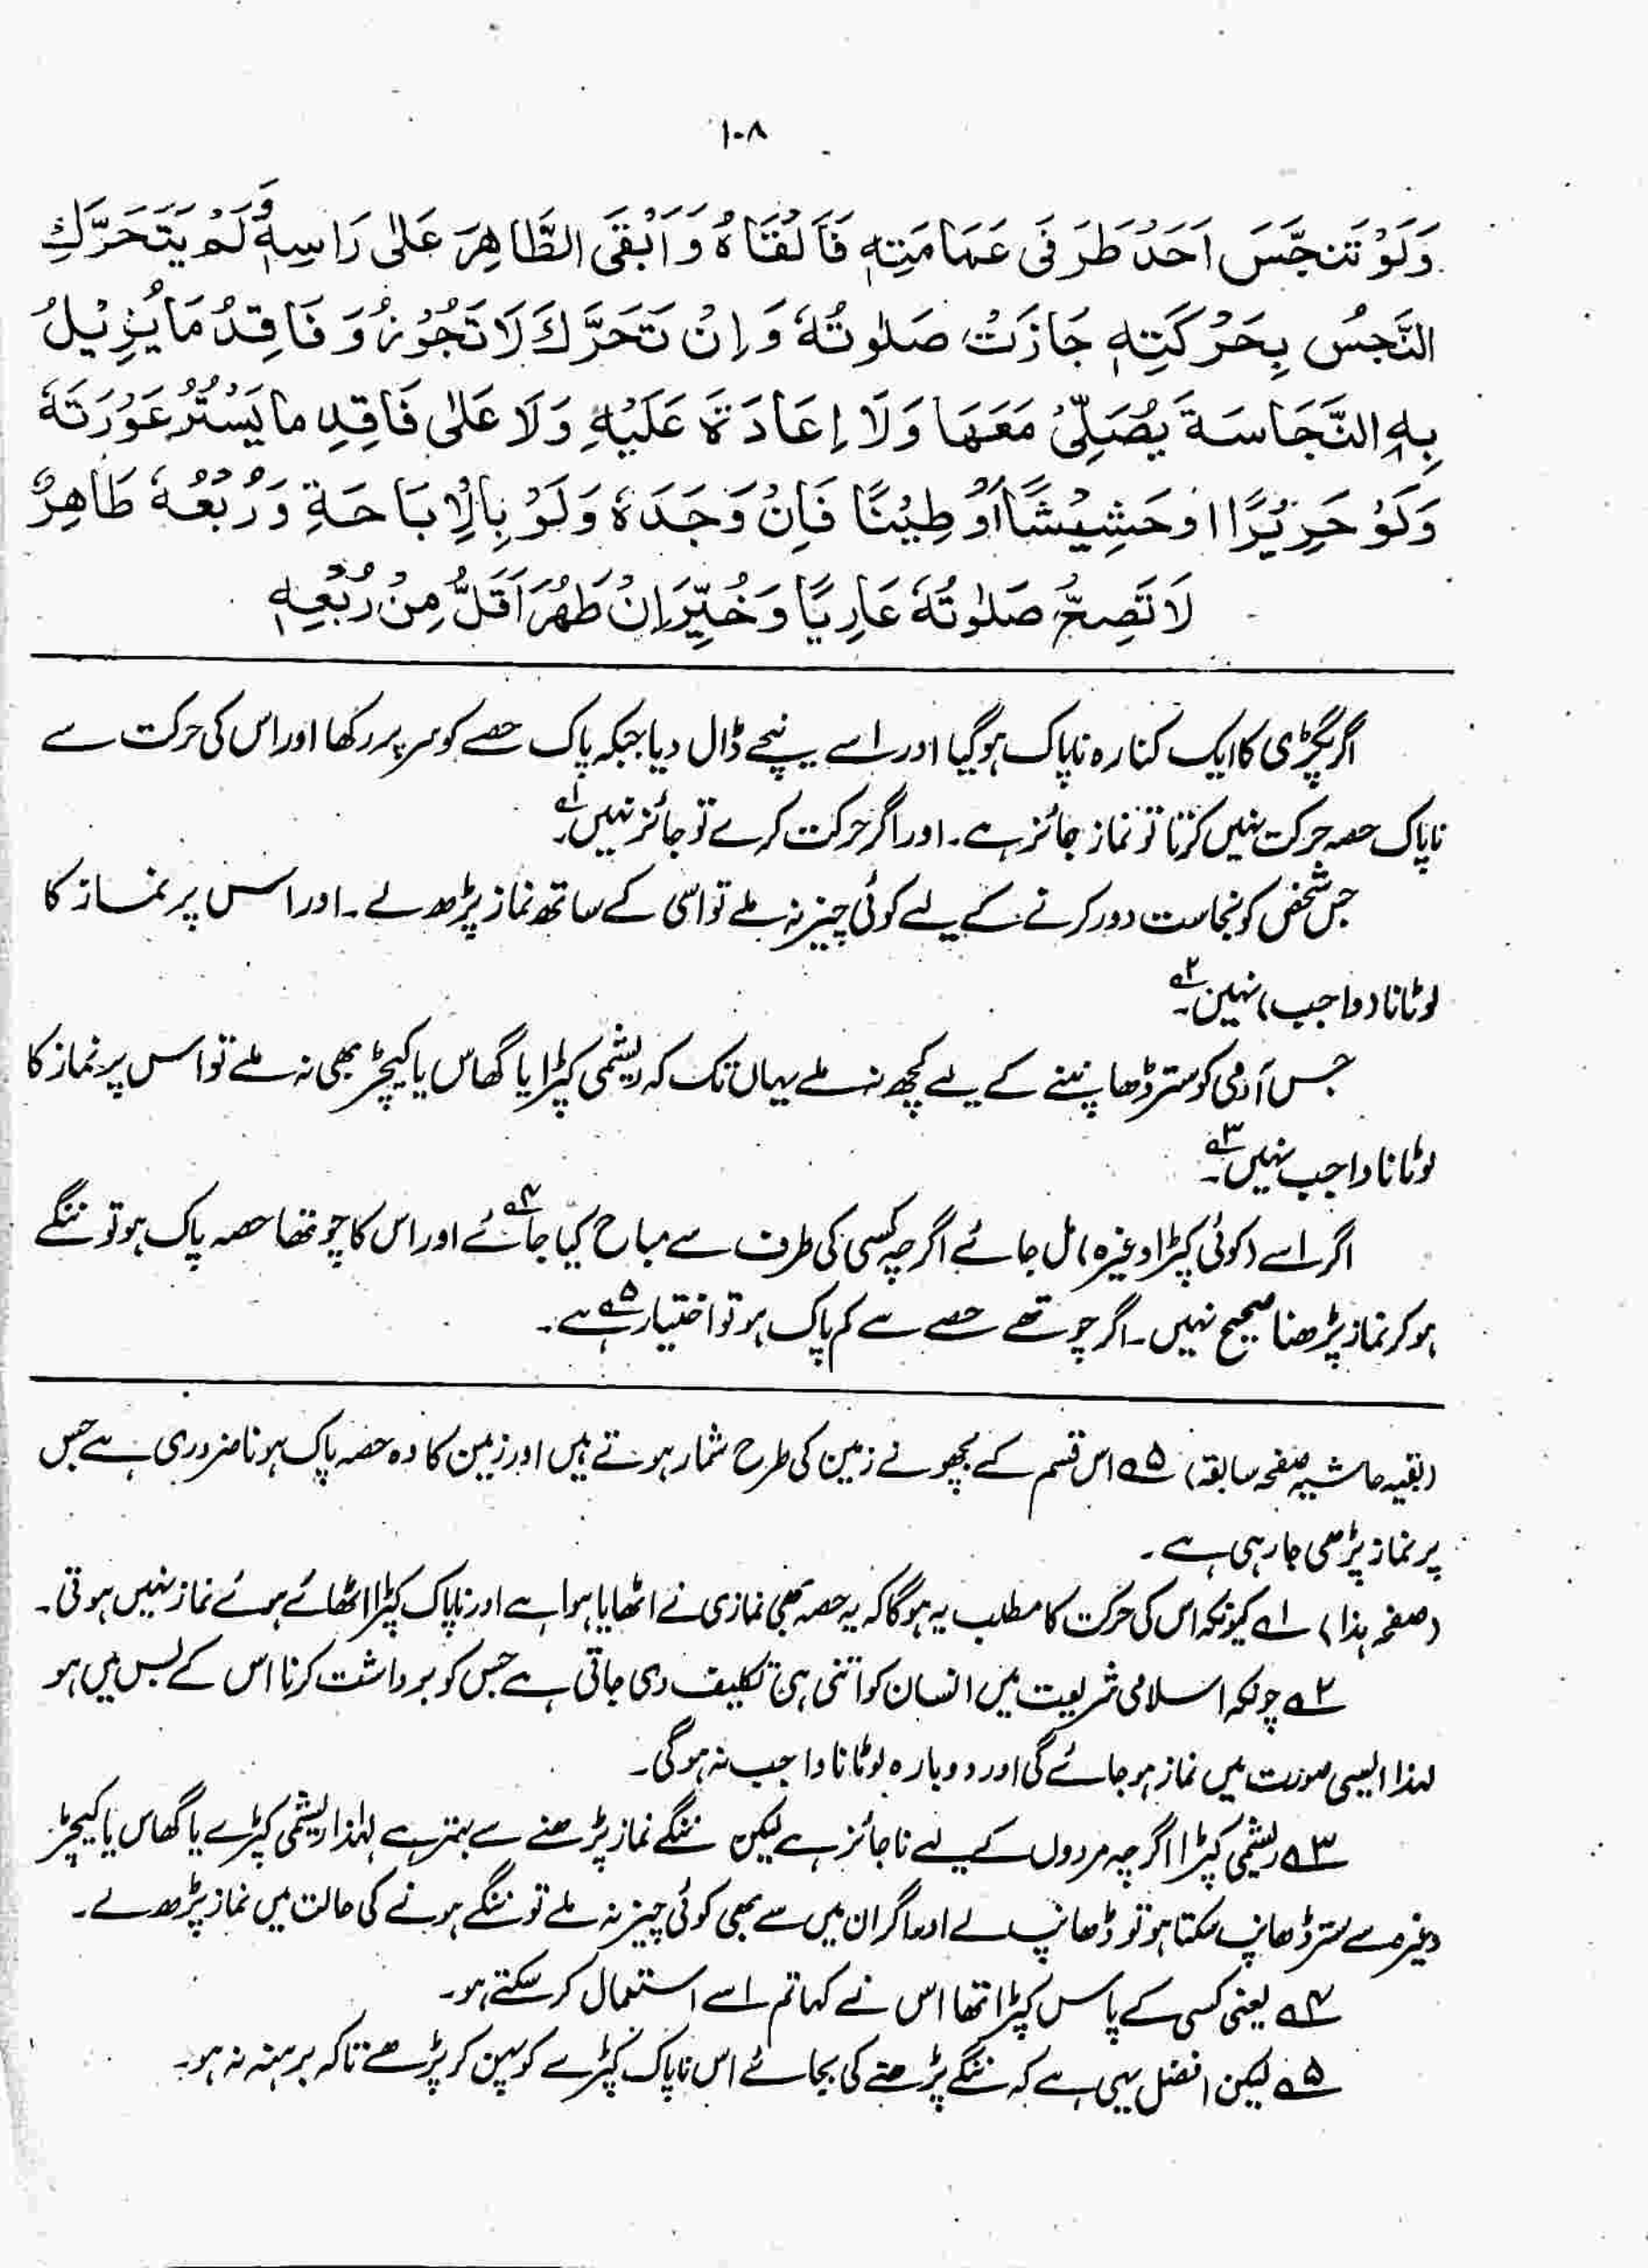 ۱۰۸
وَلَوْ تَنَجَّسَ اَحَدُ طَرَفَیْ عَمَامَتِہٖ فَاَلْقَاہُ وَاَبْقَی الطَّاھِرَ عَلٰی رَاسِہٖ وَلَمْ یَتَحَرَّکِ
النَّجِسُ بِحَرْکَتِہٖ جَازَتْ صَلٰوتُہٗ وَاِنْ تَحَرَّکَ لَا تَجُوْزُ وَفَاقِدُ مَا یُزِیْلُ
بِہِ النَّجَاسَۃَ یُصَلِّیْ مَعَھَا وَلَا اِعَادَۃَ عَلَیْہِ وَلَا عَلٰی فَاقِدِ مَا یَسْتُرُ عَوْرَتَہٗ
وَلَوْ حَرِیْرًا اَوْ حَشِیْشًا اَوْ طِیْنًا فَاِنْ وَجَدَہٗ وَلَوْ بِالْاِبَاحَۃِ وَرُبْعُہٗ طَاھِرٌ
لَا تَصِحُّ صَلٰوتُہٗ عَارِیًا وَخُیِّرَ اِنْ طَھُرَ اَقَلُّ مِنْ رُبْعِہٖ
اگر پگڑی کا ایک کنارہ ناپاک ہوگیا اور اسے نیچے ڈال دیا جبکہ پاک حصے کو سر پر رکھا اور اس کی حرکت سے
ناپاک حصہ حرکت نہیں کرتا تو نماز جائز ہے۔ اور اگر حرکت کرے تو جائز نہیں۔ ۱؎
جس شخص کو نجاست دور کرنے کے لیے کوئی چیز نہ ملے تو اسی کے ساتھ نماز پڑھ لے۔ اور اس پر نماز کا
لوٹانا (واجب) نہیں۔ ۲؎
جس آدمی کو ستر ڈھاپنے کے لیے کچھ نہ ملے یہاں تک کہ ریشمی کپڑا یا گھاس یا کیچڑ بھی نہ ملے تو اس پر نماز کا
لوٹانا واجب نہیں۔ ۳؎
اگر اسے (کوئی کپڑا وغیرہ) مل جائے اگرچہ کسی کی طرف سے مباح کیا جائے ۴؎ اور اس کا چوتھا حصہ پاک ہو تو ننگے
ہو کر نماز پڑھنا صحیح نہیں۔ اگر چوتھے حصے سے کم پاک ہو تو اختیار ۵؎ ہے۔
(بقیہ حاشیہ صفحہ سابقہ) ۵؎ اس قسم کے بچھونے زمین کی طرح شمار ہوتے ہیں اور زمین کا وہ حصہ پاک ہونا ضروری ہے جس
پر نماز پڑھی جا رہی ہے۔
(صفحہ ہذا) ۱؎ کیونکہ اس کی حرکت کا مطلب یہ ہوگا کہ یہ حصہ بھی نمازی نے اٹھایا ہوا ہے اور ناپاک کپڑا اٹھائے ہوئے نماز نہیں ہوتی۔
۲؎ چونکہ اسلامی شریعت میں انسان کو اتنی ہی تکلیف دی جاتی ہے جس کو برداشت کرنا اس کے بس میں ہو
لہذا ایسی صورت میں نماز ہو جائے گی اور دوبارہ لوٹانا واجب نہ ہوگی۔
۳؎ ریشمی کپڑا اگرچہ مردوں کے لیے ناجائز ہے لیکن ننگے نماز پڑھنے سے بہتر ہے لہٰذا ریشمی کپڑے یا گھاس یا کیچڑ
وغیرہ سے ستر ڈھانپ سکتا ہو تو ڈھانپ لے اور اگر ان میں سے بھی کوئی چیز نہ ملے تو ننگے ہونے کی حالت میں نماز پڑھ لے۔
۴؎ یعنی کسی کے پاس کپڑا تھا اس نے کہا تم اسے استعمال کر سکتے ہو۔
۵؎ لیکن افضل یہی ہے کہ ننگے پڑھنے کی بجائے اس ناپاک کپڑے کو پہن کر پڑھے تاکہ برہنہ نہ ہو۔